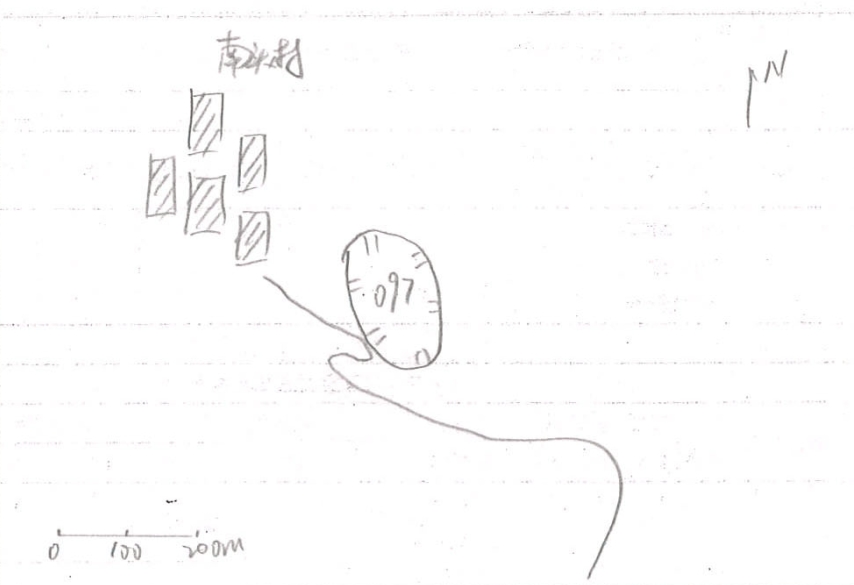 南冰村
N
097
0 100 200m